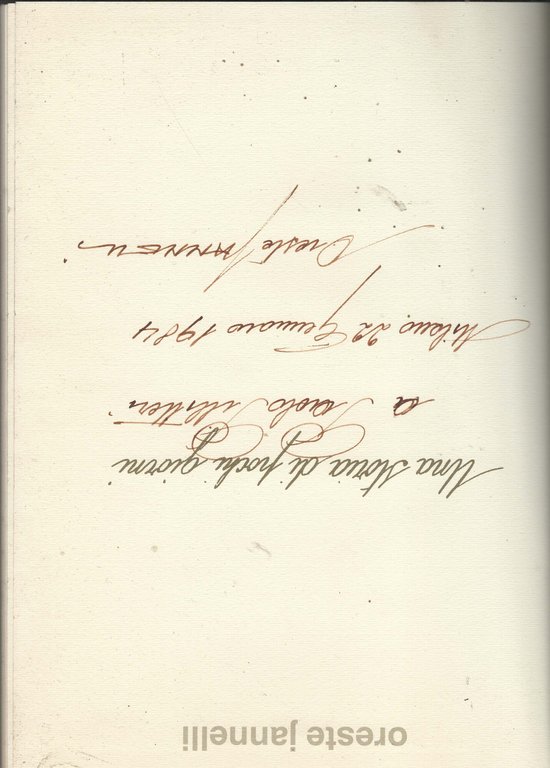 oreste jannelli
Una storia di pochi giorni
a Paolo Pillitteri
Milano 22 Gennaio 1984
Oreste JANNELLI